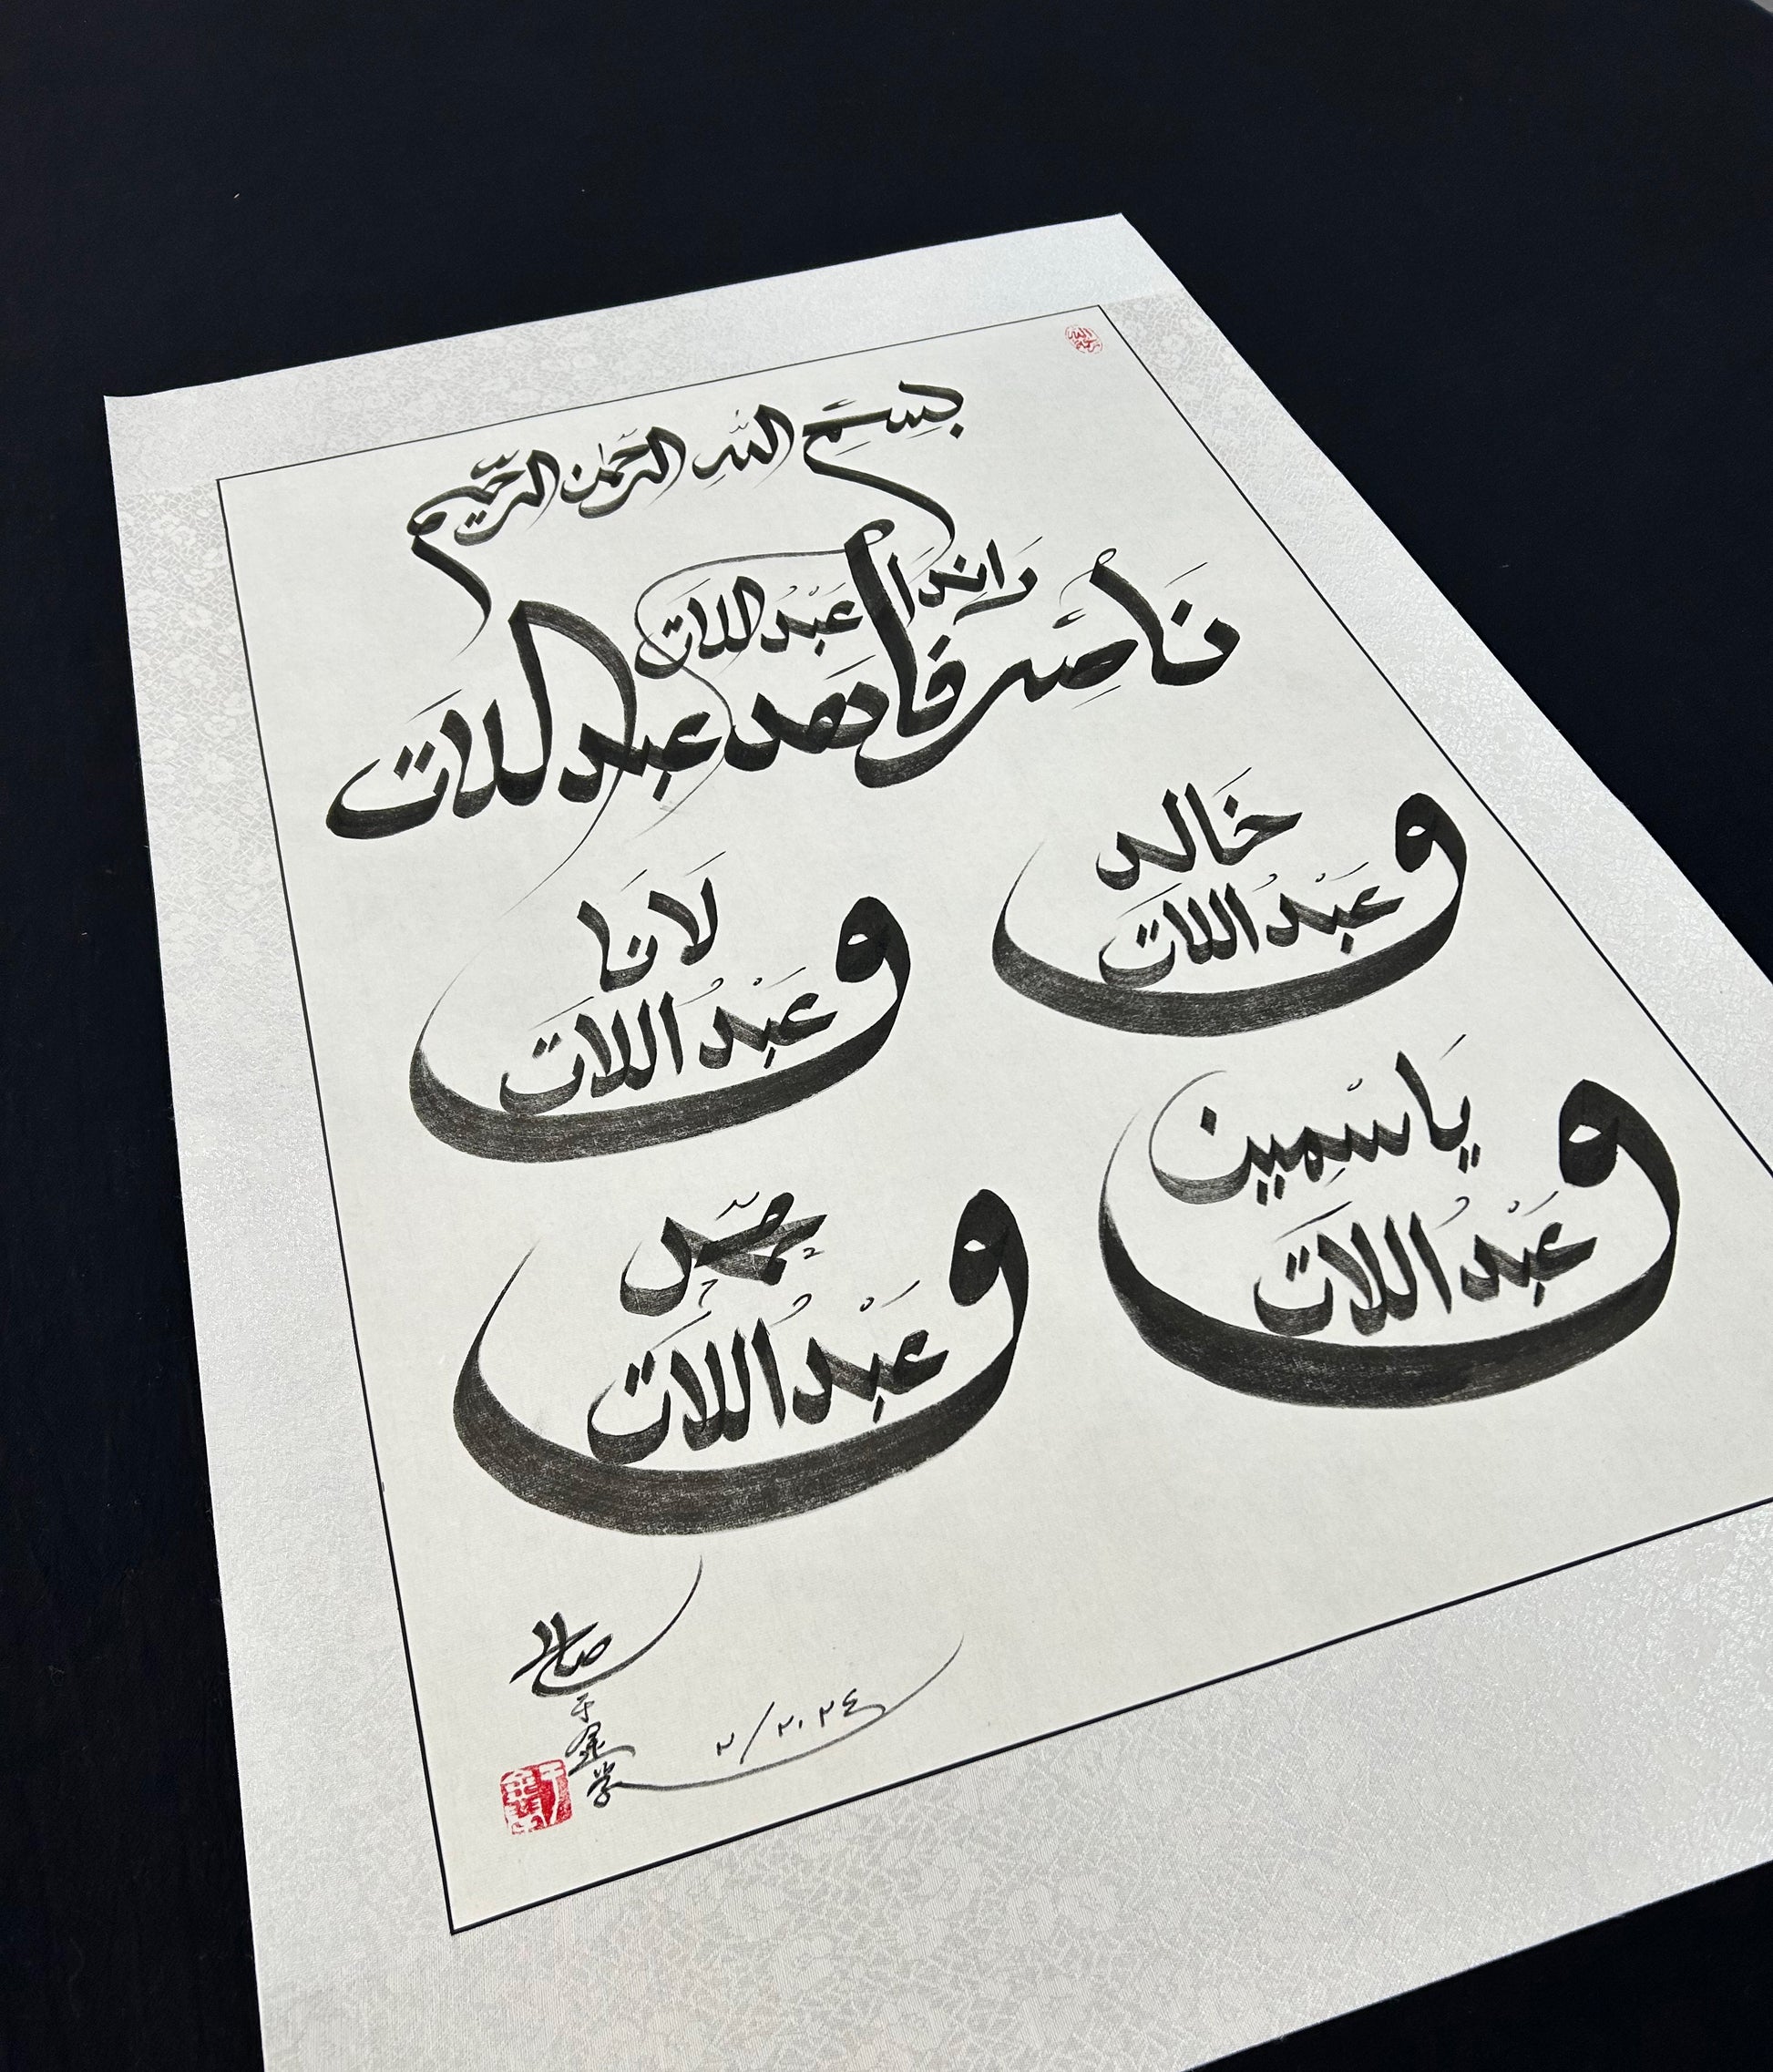 بِسْمِ اللّٰهِ الرَّحْمٰنِ الرَّحِيمِ
رَاندَا عَبْدُاللَات
نَاصِر فَاهد عبداللَات
و خَالد
عَبْدُاللَات
و لَانَا
عَبْدُاللَات
و يَاسْمِين
عَبْدُاللَات
و محمّد
عَبْدُاللَات
صالح
于金学
٢/٢٠٢٤